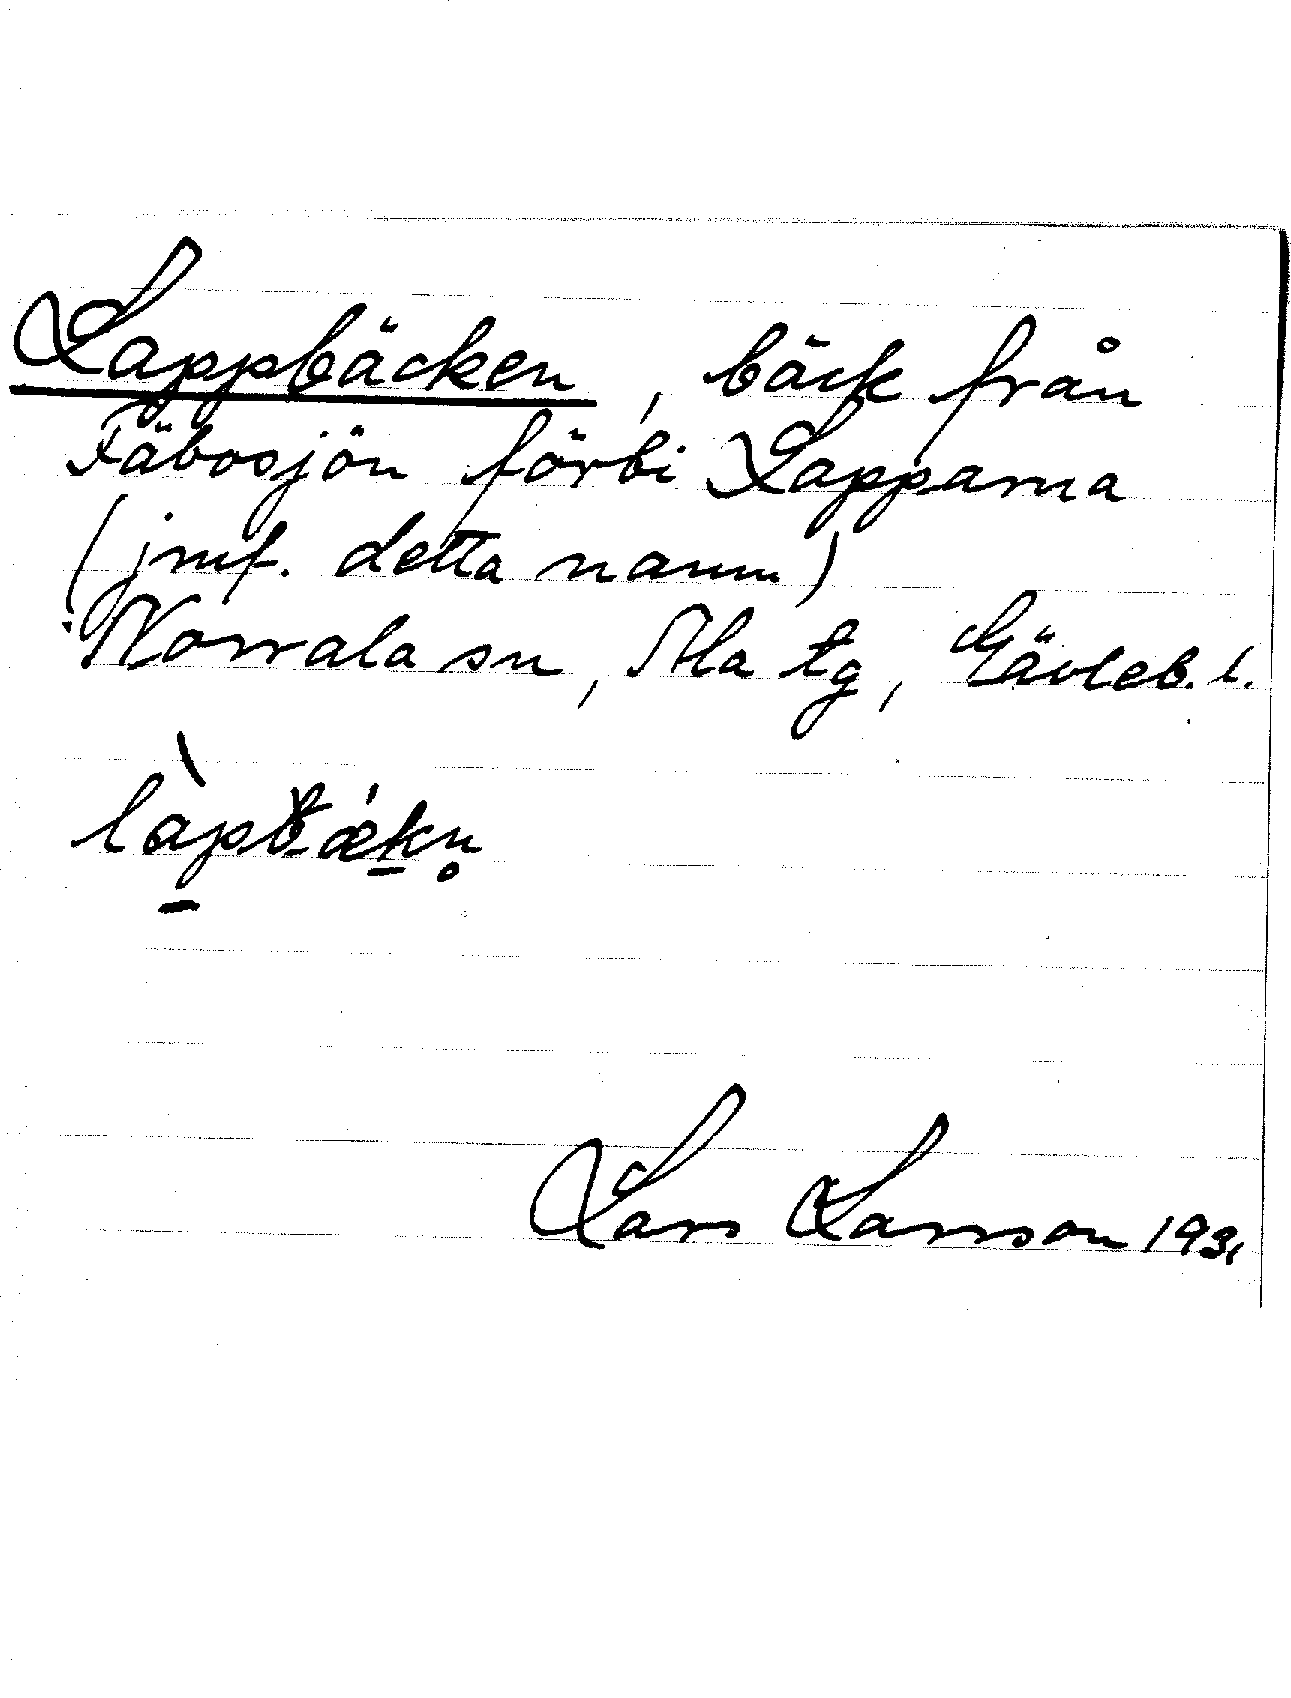 Lappbäcken, bäck från
Fäbosjön förbi Lapparna
(jmf. detta namn)
Norrala sn, Ala tg, Gävleb. l.
làpbǽkn̥
Lars Larsson 1931